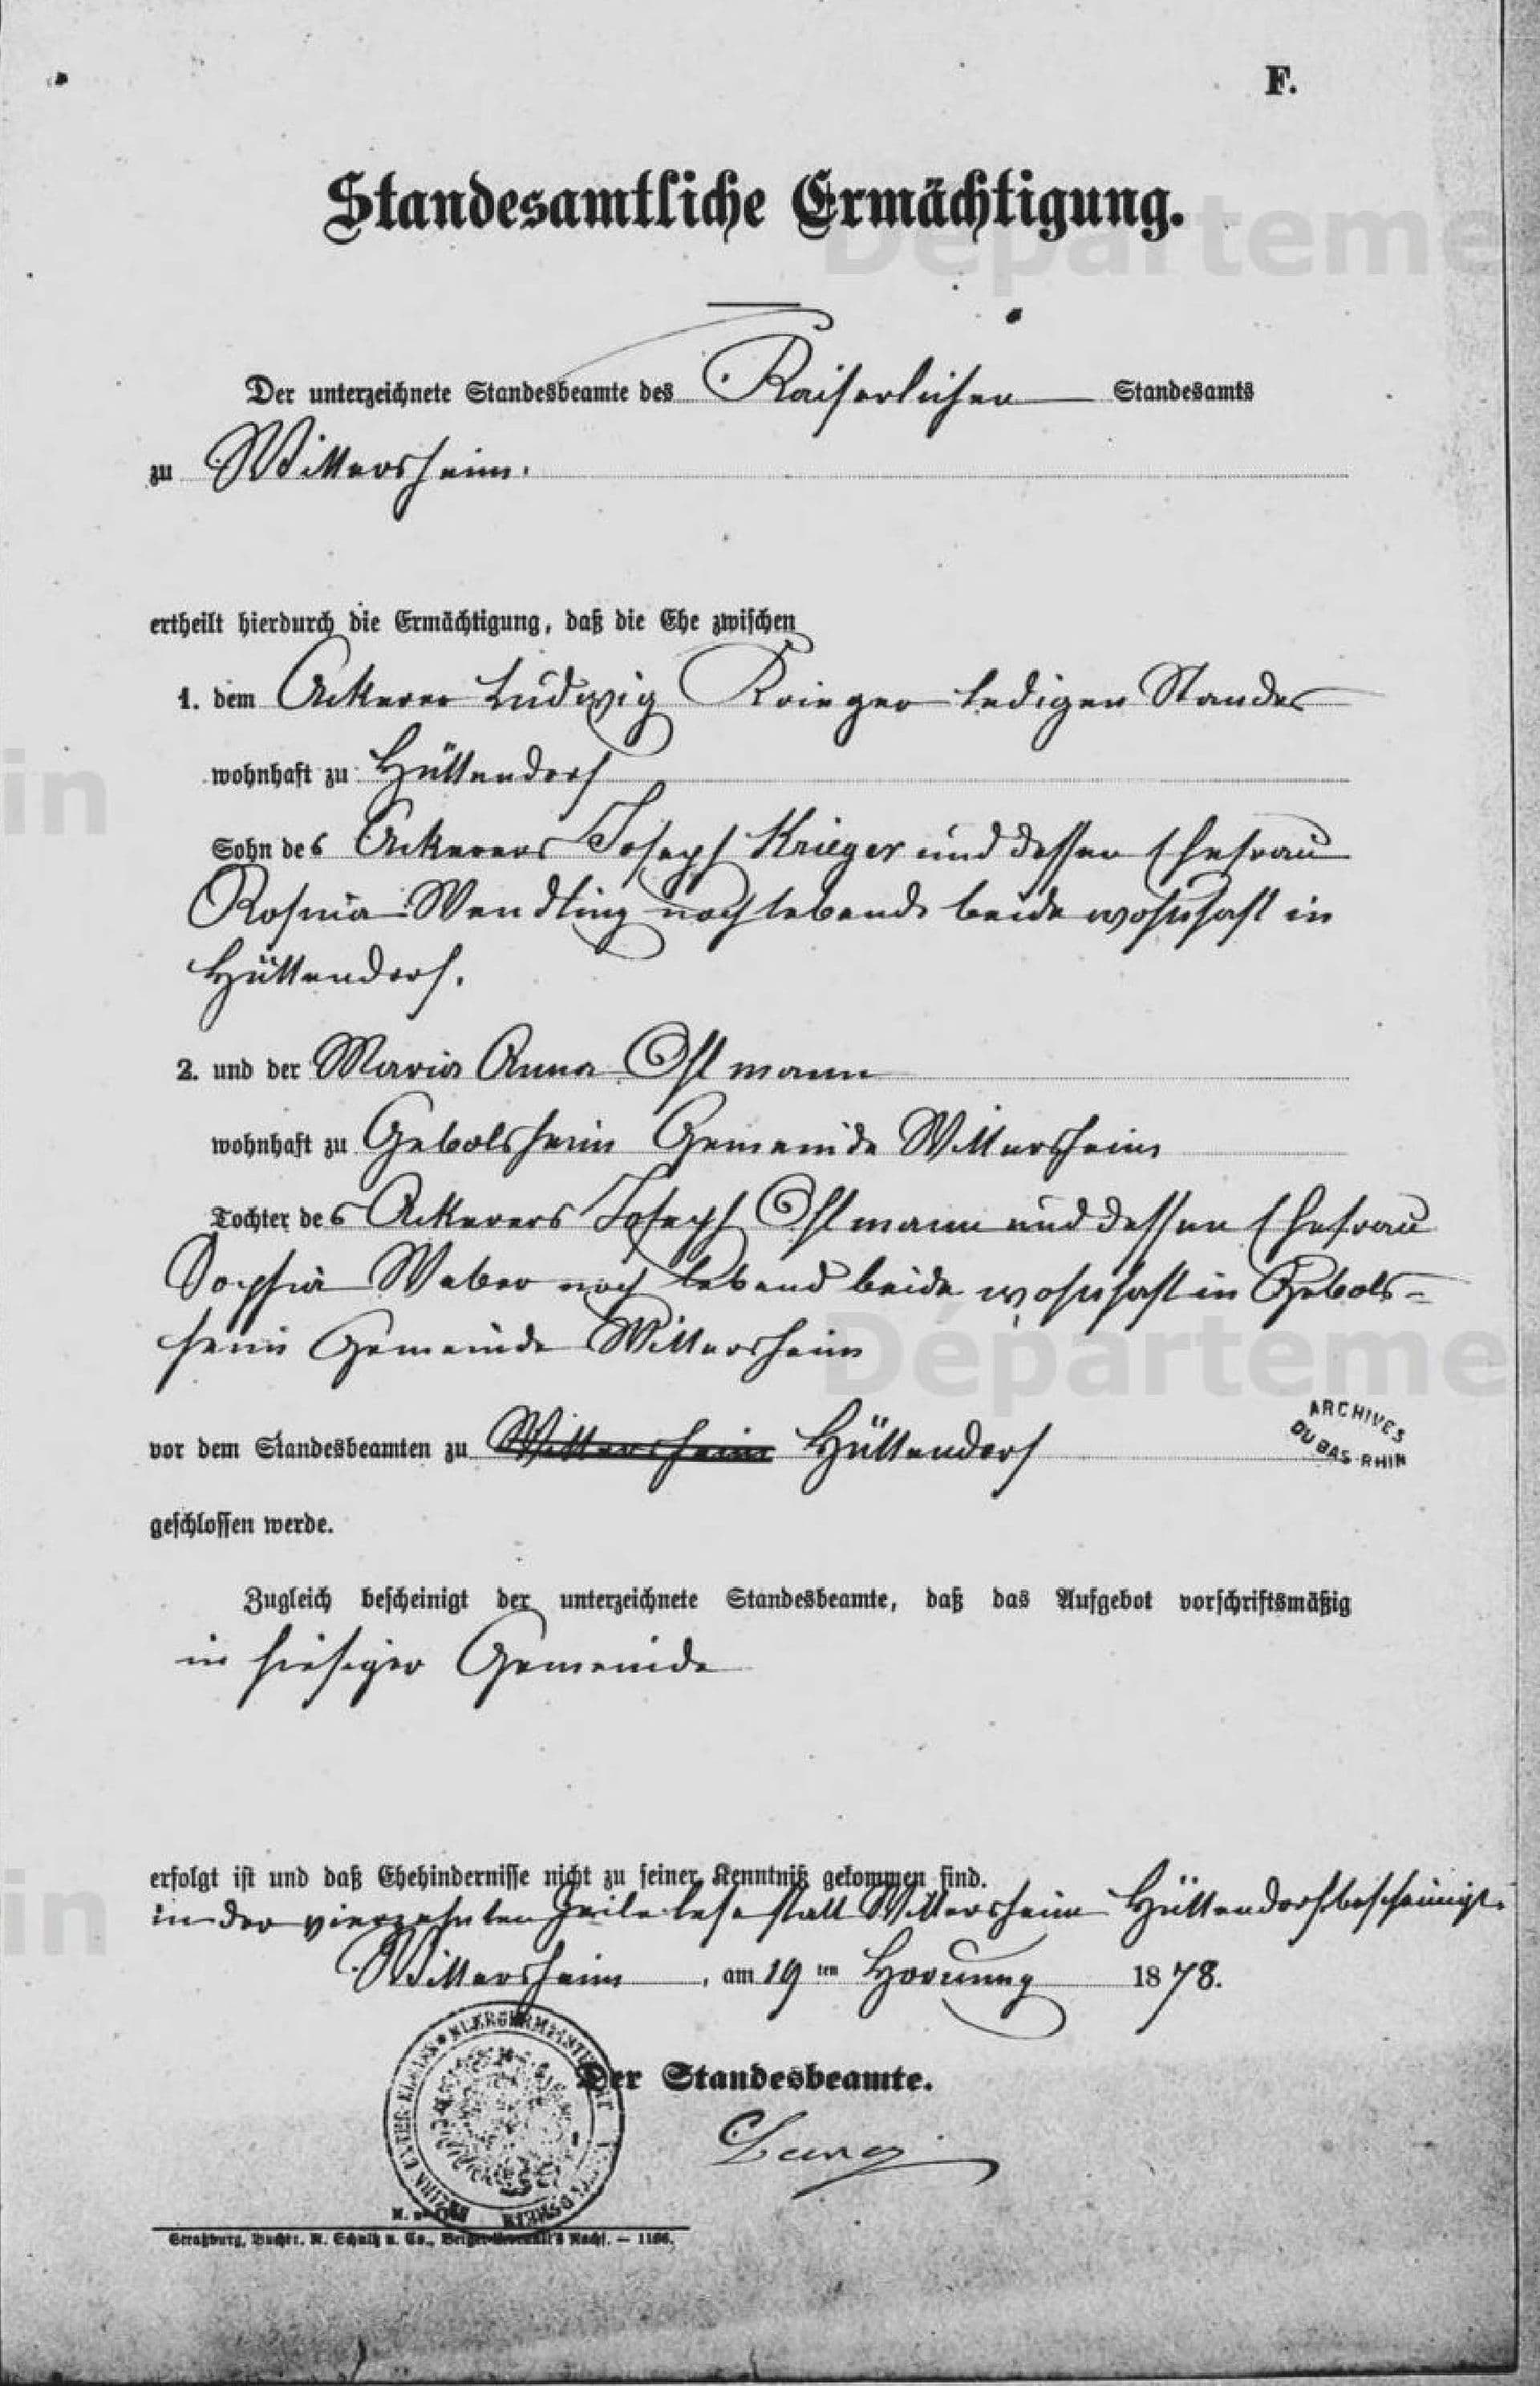 F.
Standesamtliche Ermächtigung.
Der unterzeichnete Standesbeamte des Kaiserlichen Standesamts
zu Wittersheim.
ertheilt hierdurch die Ermächtigung, daß die Ehe zwischen
1. dem Ackerer Ludwig Krieger ledigen Standes
wohnhaft zu Hüttendorf
Sohn des Ackerers Joseph Krieger und dessen Ehefrau
Rosina Wendling noch lebend beide wohnhaft in
Hüttendorf.
2. und der Maria Anna Ohlmann
wohnhaft zu Gebolsheim Gemeinde Wittersheim
Tochter des Ackerers Joseph Ohlmann und dessen Ehefrau
Sophia Weber noch lebend beide wohnhaft in Gebols-
heim Gemeinde Wittersheim
vor dem Standesbeamten zu Wittersheim Hüttendorf
ARCHIVES
DU BAS-RHIN
geschlossen werde.
Zugleich bescheinigt der unterzeichnete Standesbeamte, daß das Aufgebot vorschriftsmäßig
in hiesiger Gemeinde
erfolgt ist und daß Ehehindernisse nicht zu seiner Kenntniß gekommen sind.
in der vierzehnten Zeile lese statt Wittersheim Hüttendorf bescheinigt.
Wittersheim, am 19ten Hornung 1878.
Der Standesbeamte.
Straßburg, Buchdr. R. Schultz u. Co., Nachf. — 1166.
Départeme
in
Départeme
in